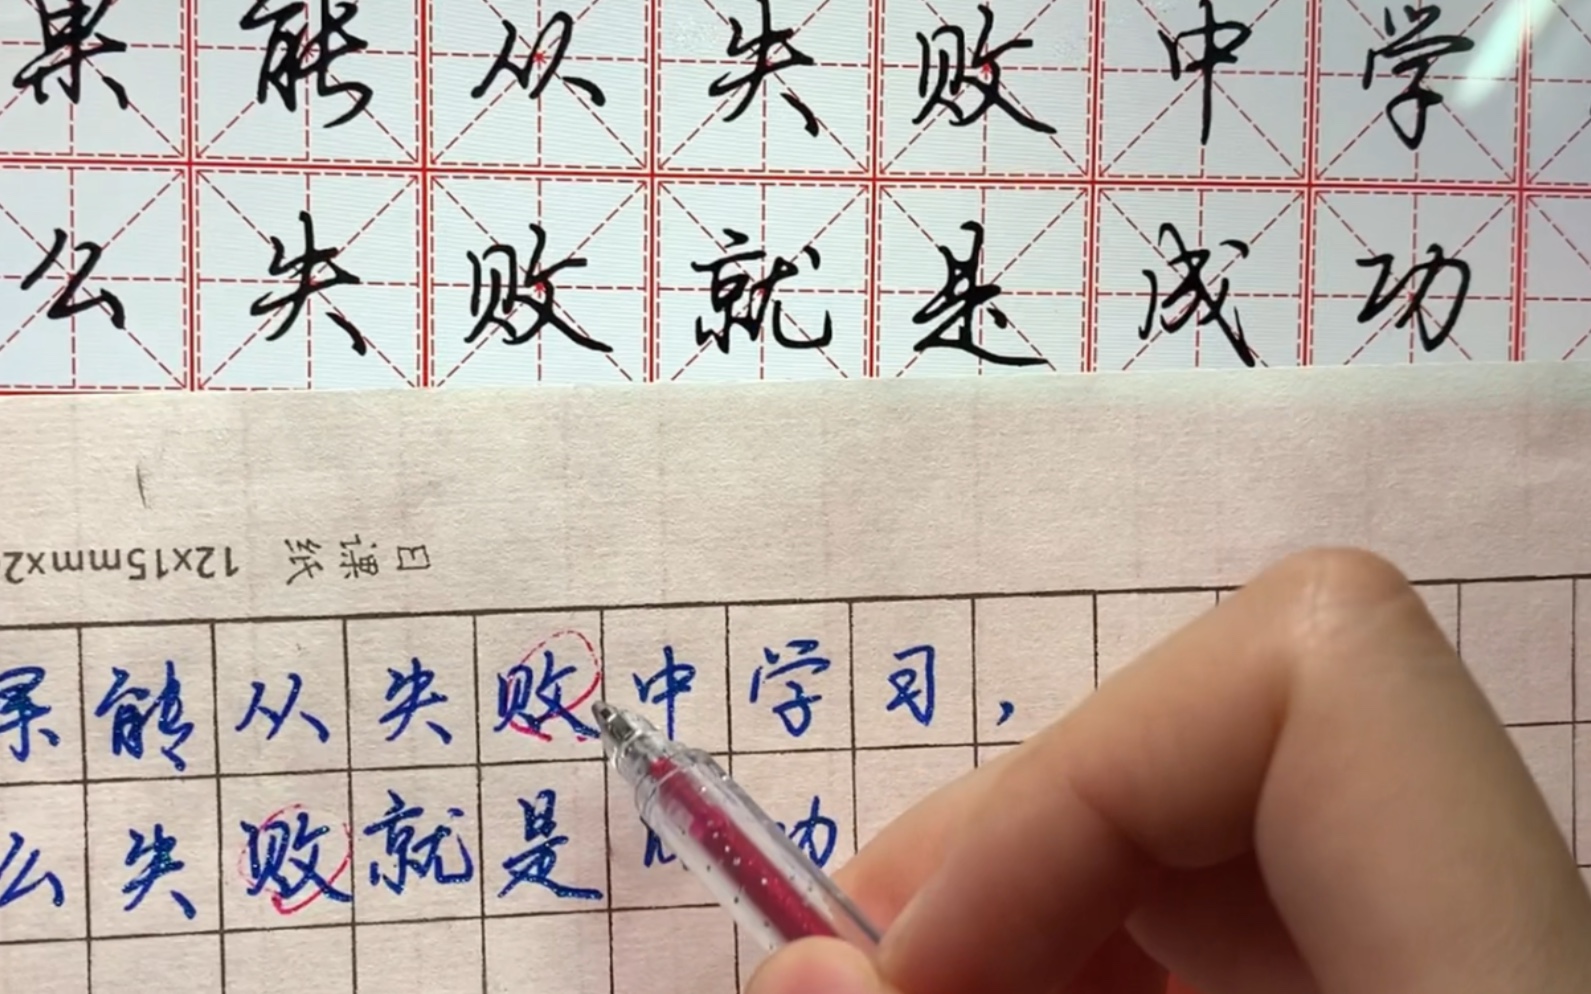 果能从失败中学
么失败就是成功
日课纸 12x15mmx2
果能从失败中学习，
么失败就是成功